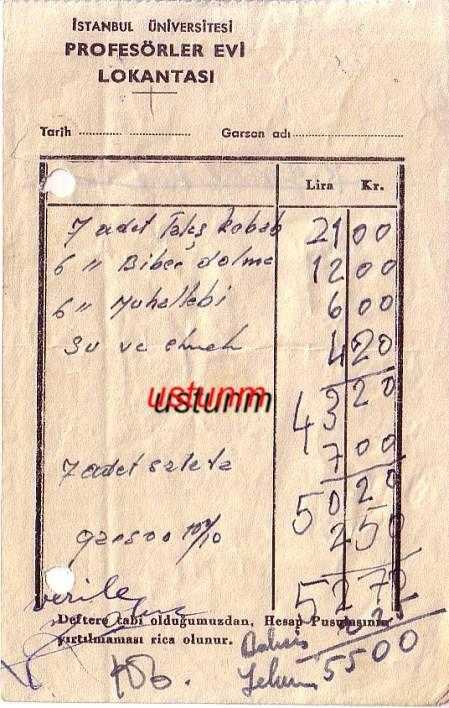 İSTANBUL ÜNİVERSİTESİ
PROFESÖRLER EVİ
LOKANTASI
Tarih .................... Garson adı ....................
Lira Kr.
7 adet Talaş kebab 21 00
6 " Biber dolma 12 00
6 " Muhallebi 6 00
Su ve ekmek 4 20
43 20
ustunm
7 adet salata 7 00
50 20
garson 10/10 2 50
52 70
Deftere tabi olduğumuzdan, Hesap Pusulasının
yırtılmaması rica olunur.
Bahşiş
Yekun 55 00